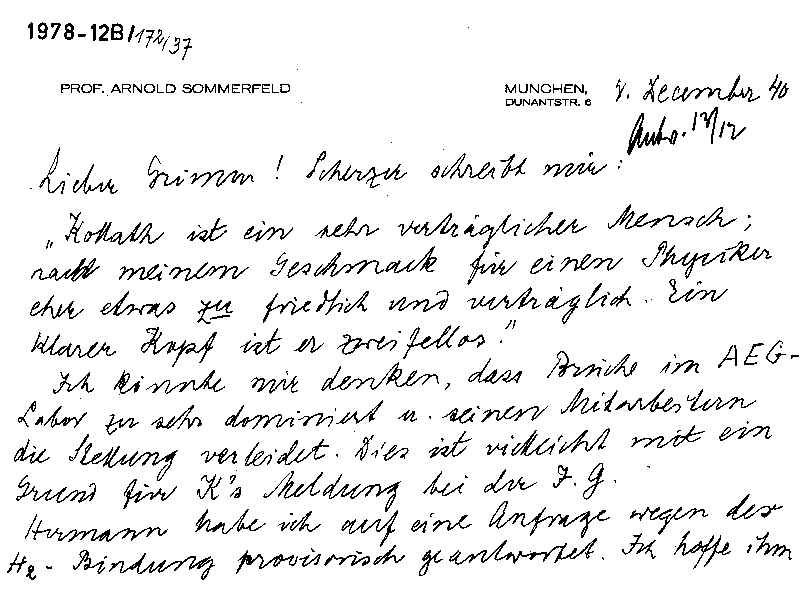 1978-12B/172/37
PROF. ARNOLD SOMMERFELD
MÜNCHEN, 8. December 40
DUNANTSTR. 6
Antw. 12/12
Lieber Grimm! Scherzer schreibt mir:
„Kollath ist ein sehr verträglicher Mensch;
nach meinem Geschmack für einen Physiker
eher etwas zu friedlich und verträglich. Ein
klarer Kopf ist er zweifellos."
Ich könnte mir denken, dass Brüche im AEG-
Labor zu sehr dominiert u. seinen Mitarbeitern
die Stellung verleidet. Dies ist vielleicht mit ein
Grund für K's Meldung bei der I. G.
Hermann habe ich auf eine Anfrage wegen der
H2-Bindung provisorisch geantwortet. Ich hoffe ihm